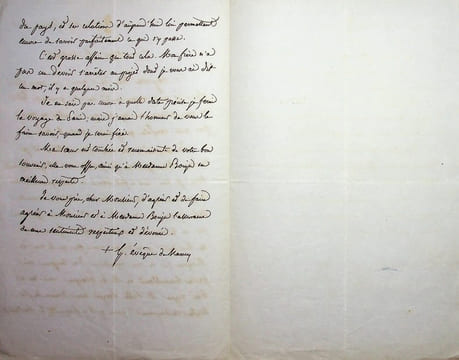 du pays, et ses relations d'aujourd'hui lui permettent
encore de savoir parfaitement ce qui s'y passe.
C'est grosse affaire que tout cela. Mon frère n'a
pas cru devoir s'arrêter au projet dont je vous ai dit
un mot, il y a quelques mois.
Je ne sais pas encore à quelle date précise je ferai
le voyage de Paris; mais j'aurai l'honneur de vous le
faire savoir, quand je serai fixé.
Ma sœur est touchée et reconnaissante de votre bon
souvenir; elle vous offre, ainsi qu'à Madame
meilleurs respects.
Je vous prie, cher Monsieur, d'agréer et de faire
agréer à Monsieur et à Madame l'assurance
de mes sentiments respectueux et dévoués.
+ évêque de Nancy